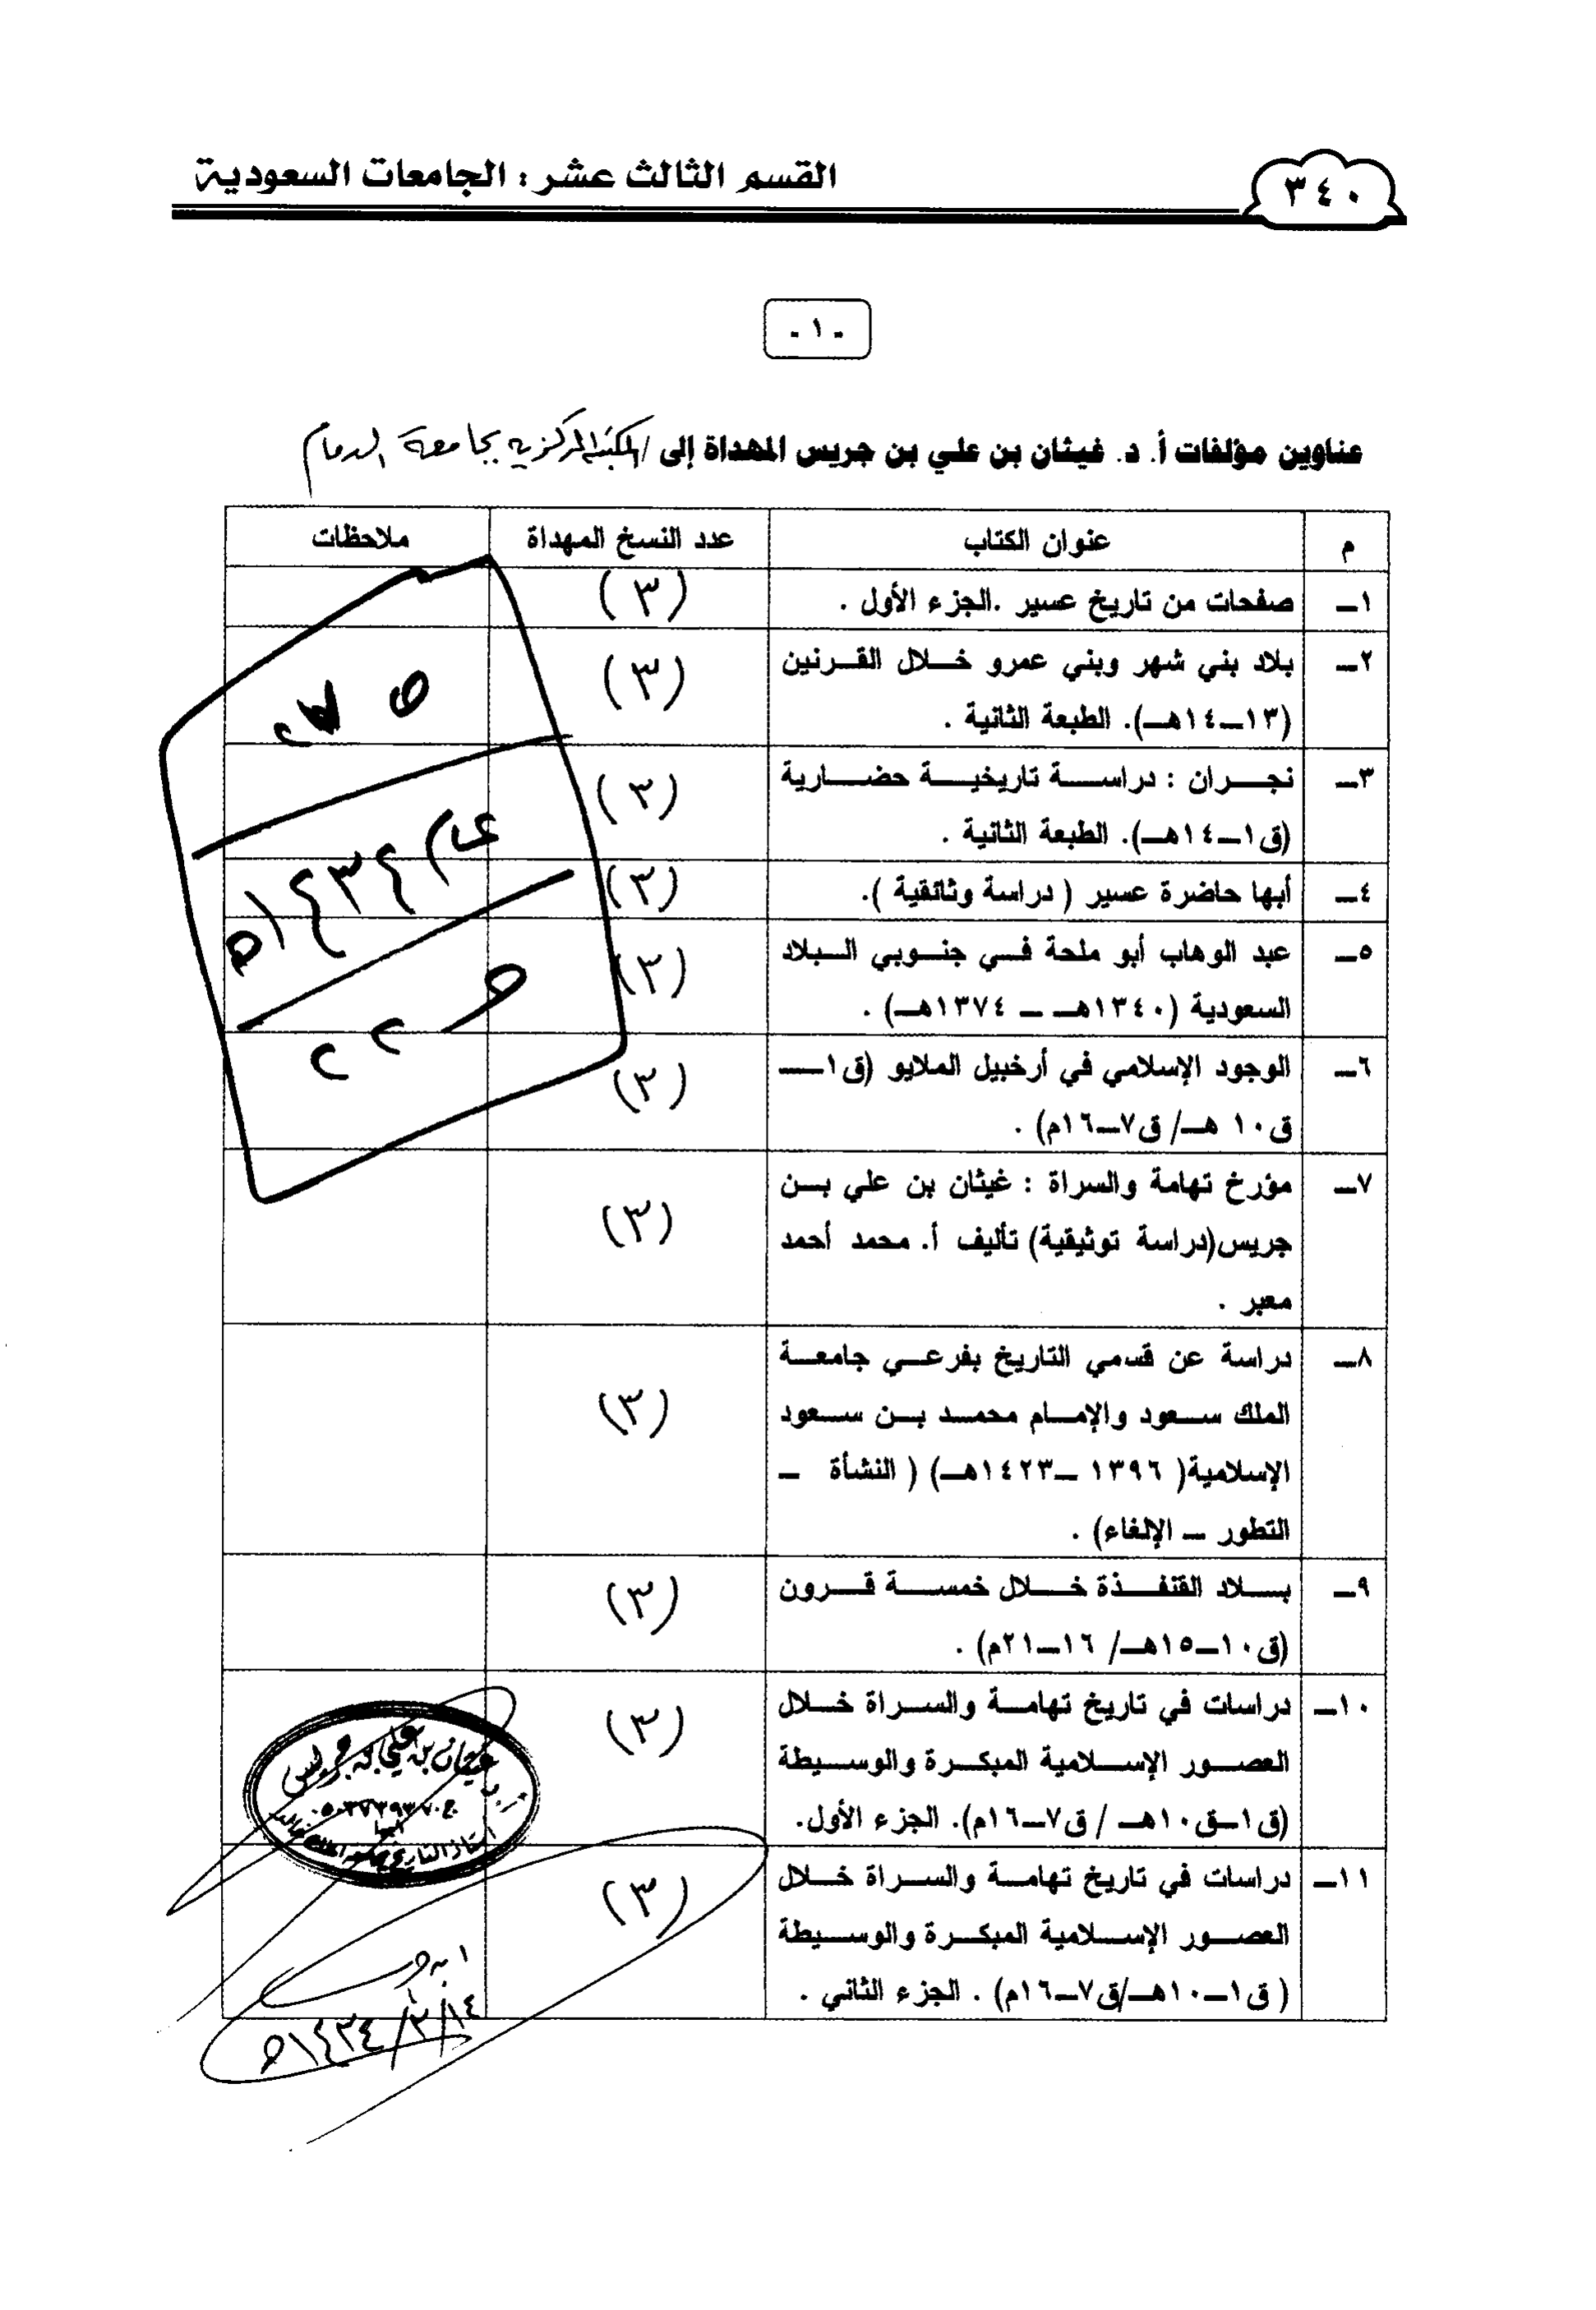 ٣٤٠
القسم الثالث عشر : الجامعات السعودية
- ١ -
عناوين مؤلفات أ. د. غيثان بن علي بن جريس المهداة إلى / المكتبة المركزية بجامعة الدمام
م عنوان الكتاب عدد النسخ المهداة ملاحظات
١ـ صفحات من تاريخ عسير .الجزء الأول . (٣)
٢ـ بلاد بني شهر وبني عمرو خلال القرنين (٣)
(١٣ـ١٤هـ). الطبعة الثانية .
٣ـ نجران : دراسة تاريخية حضارية (٣)
(ق١ـ١٤هـ). الطبعة الثانية .
عام ١٤٣٤هـ
٤ـ أبها حاضرة عسير ( دراسة وثائقية ). (٣)
٥ـ عبد الوهاب أبو ملحة في جنوبي البلاد (٣)
السعودية (١٣٤٠هـ ـ ١٣٧٤هـ) .
٦ـ الوجود الإسلامي في أرخبيل الملايو (ق١ـ (٣)
ق١٠ هـ/ ق٧ـ١٦م) .
٧ـ مؤرخ تهامة والسراة : غيثان بن علي بن (٣)
جريس(دراسة توثيقية) تأليف أ. محمد أحمد
معبر .
٨ـ دراسة عن قسمي التاريخ بفرعي جامعة (٣)
الملك سعود والإمام محمد بن سعود
الإسلامية( ١٣٩٦ ـ١٤٢٣هـ) ( النشأة ـ
التطور ـ الإلغاء) .
٩ـ بلاد القنفذة خلال خمسة قرون (٣)
(ق١٠ـ١٥هـ/ ١٦ـ٢١م) .
١٠ـ دراسات في تاريخ تهامة والسراة خلال (٣)
العصور الإسلامية المبكرة والوسيطة
(ق١ـق١٠هـ / ق٧ـ١٦م). الجزء الأول.
غيثان بن علي بن جريس
أبها
١١ـ دراسات في تاريخ تهامة والسراة خلال (٣)
العصور الإسلامية المبكرة والوسيطة
( ق١ـ١٠هـ/ق٧ـ١٦م) . الجزء الثاني .
١٤/٢/١٤٣٤هـ